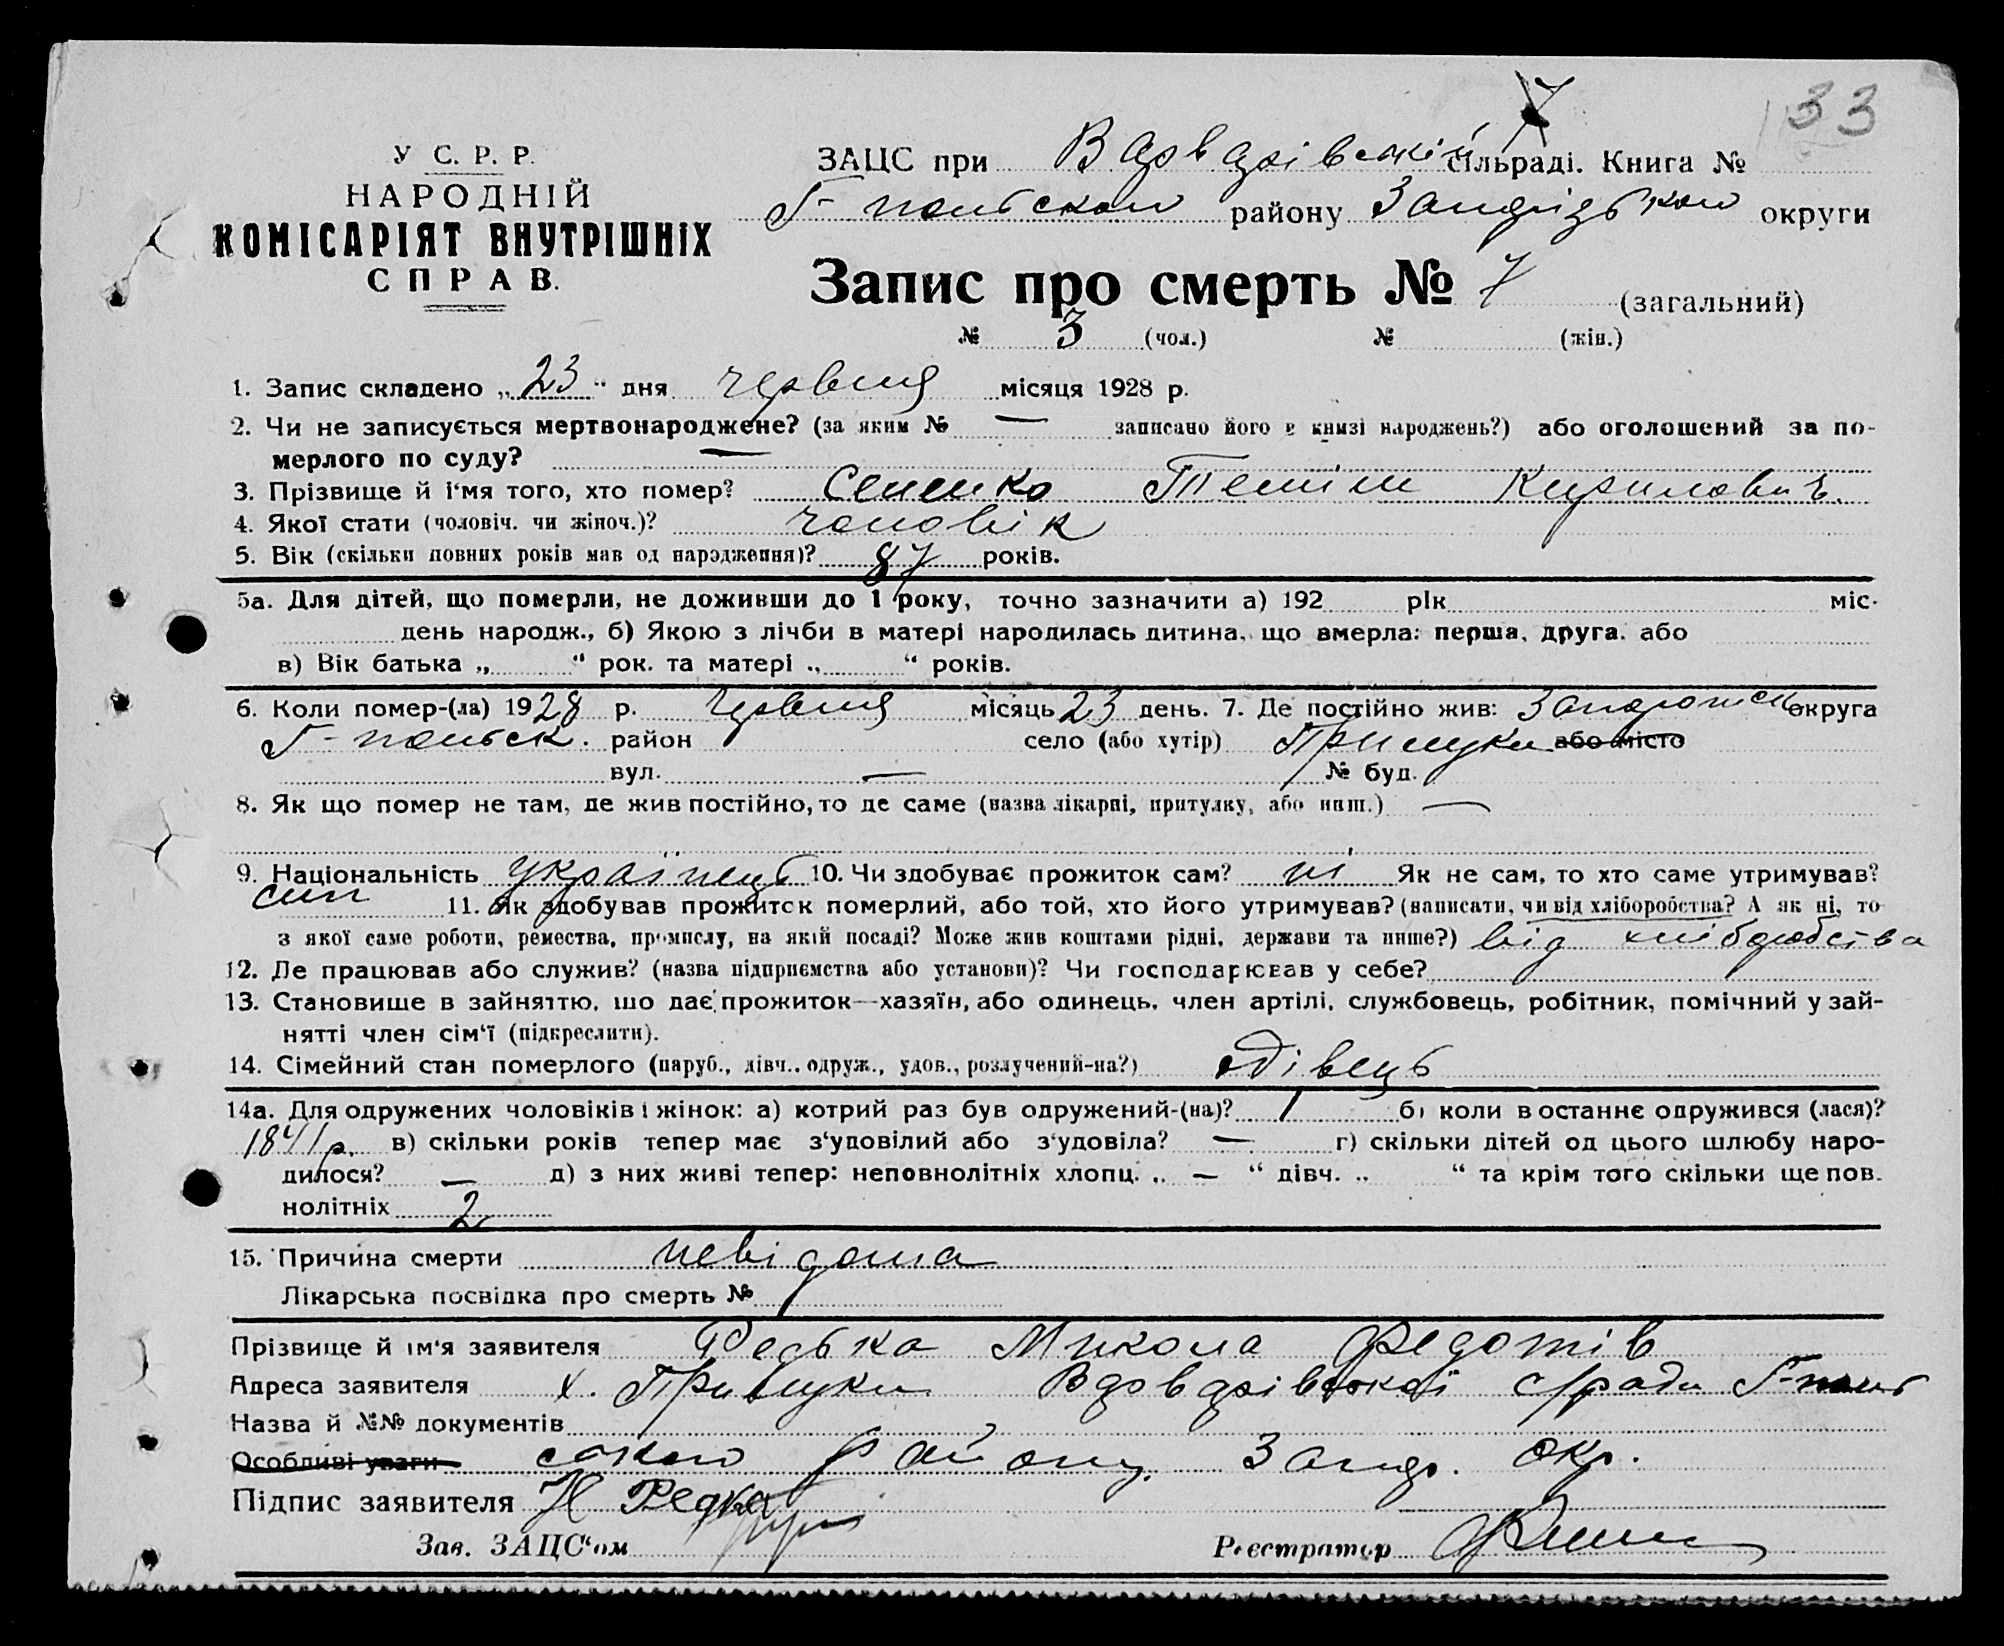 33
У С. Р. Р.
НАРОДНІЙ
КОМІСАРІЯТ ВНУТРІШНІХ
СПРАВ.
ЗАЦС при Варварівській сільраді. Книга № 7
Г-польської району Запорізької округи
Запис про смерть № 7 (загальний)
№ 3 (чол.) № (жін.)
1. Запис складено „23“ дня червня місяця 1928 р.
2. Чи не записується мертвонароджене? (за яким № — записано його в книзі народжень?) або оголошений за по-
мерлого по суду? —
3. Прізвище й і'мя того, хто помер? Кирилович
4. Якої стати (чоловіч. чи жіноч.)? чоловік
5. Вік (скільки повних років мав од народження)? 87 років.
5а. Для дітей, що померли, не доживши до 1 року, точно зазначити а) 192 рік міс.
день народж., б) Якою з лічби в матері народилась дитина, що вмерла: перша, друга, або
в) Вік батька „ “ рок. та матері „ “ років.
6. Коли помер-(ла) 1928 р. червня місяць 23 день. 7. Де постійно жив: округа
Г-польськ. район село (або хутір) Прилуки або місто
вул. — № буд.
8. Як що помер не там, де жив постійно, то де саме (назва лікарні, притулку, або инш.) —
9. Національність українець 10. Чи здобуває прожиток сам? ні Як не сам, то хто саме утримував?
син 11. Як здобував прожиток померлий, або той, хто його утримував? (написати, чи від хліборобства? А як ні, то
з якої саме роботи, ремества, промислу, на якій посаді? Може жив коштами рідні, держави та инше?) від хліборобства
12. Де працював або служив? (назва підприємства або установи)? Чи господарював у себе?
13. Становище в зайняттю, що дає прожиток—хазяїн, або одинець, член артілі, службовець, робітник, помічний у зай-
нятті член сім'ї (підкреслити).
14. Сімейний стан померлого (паруб., дівч., одруж., удов., розлучений-на?) вдівець
14а. Для одружених чоловіків і жінок: а) котрий раз був одружений-(на)? 1 б) коли в останнє одружився (лася)?
1871 р. в) скільки років тепер має з'удовілий або з'удовіла? — г) скільки дітей од цього шлюбу наро-
дилося? — д) з них живі тепер: неповнолітніх хлопц. „ — “ дівч. „ “ та крім того скільки ще пов.
нолітніх 2
15. Причина смерти невідома
Лікарська посвідка про смерть №
Прізвище й ім'я заявителя Редька Микола Федотів
Адреса заявителя х. Прилуки Варварівської с/ради Г-поль
Назва й №№ документів
Особливі уваги ського району Запор. окр.
Підпис заявителя Н Редька
Зав. ЗАЦС'ом
Реєстратор